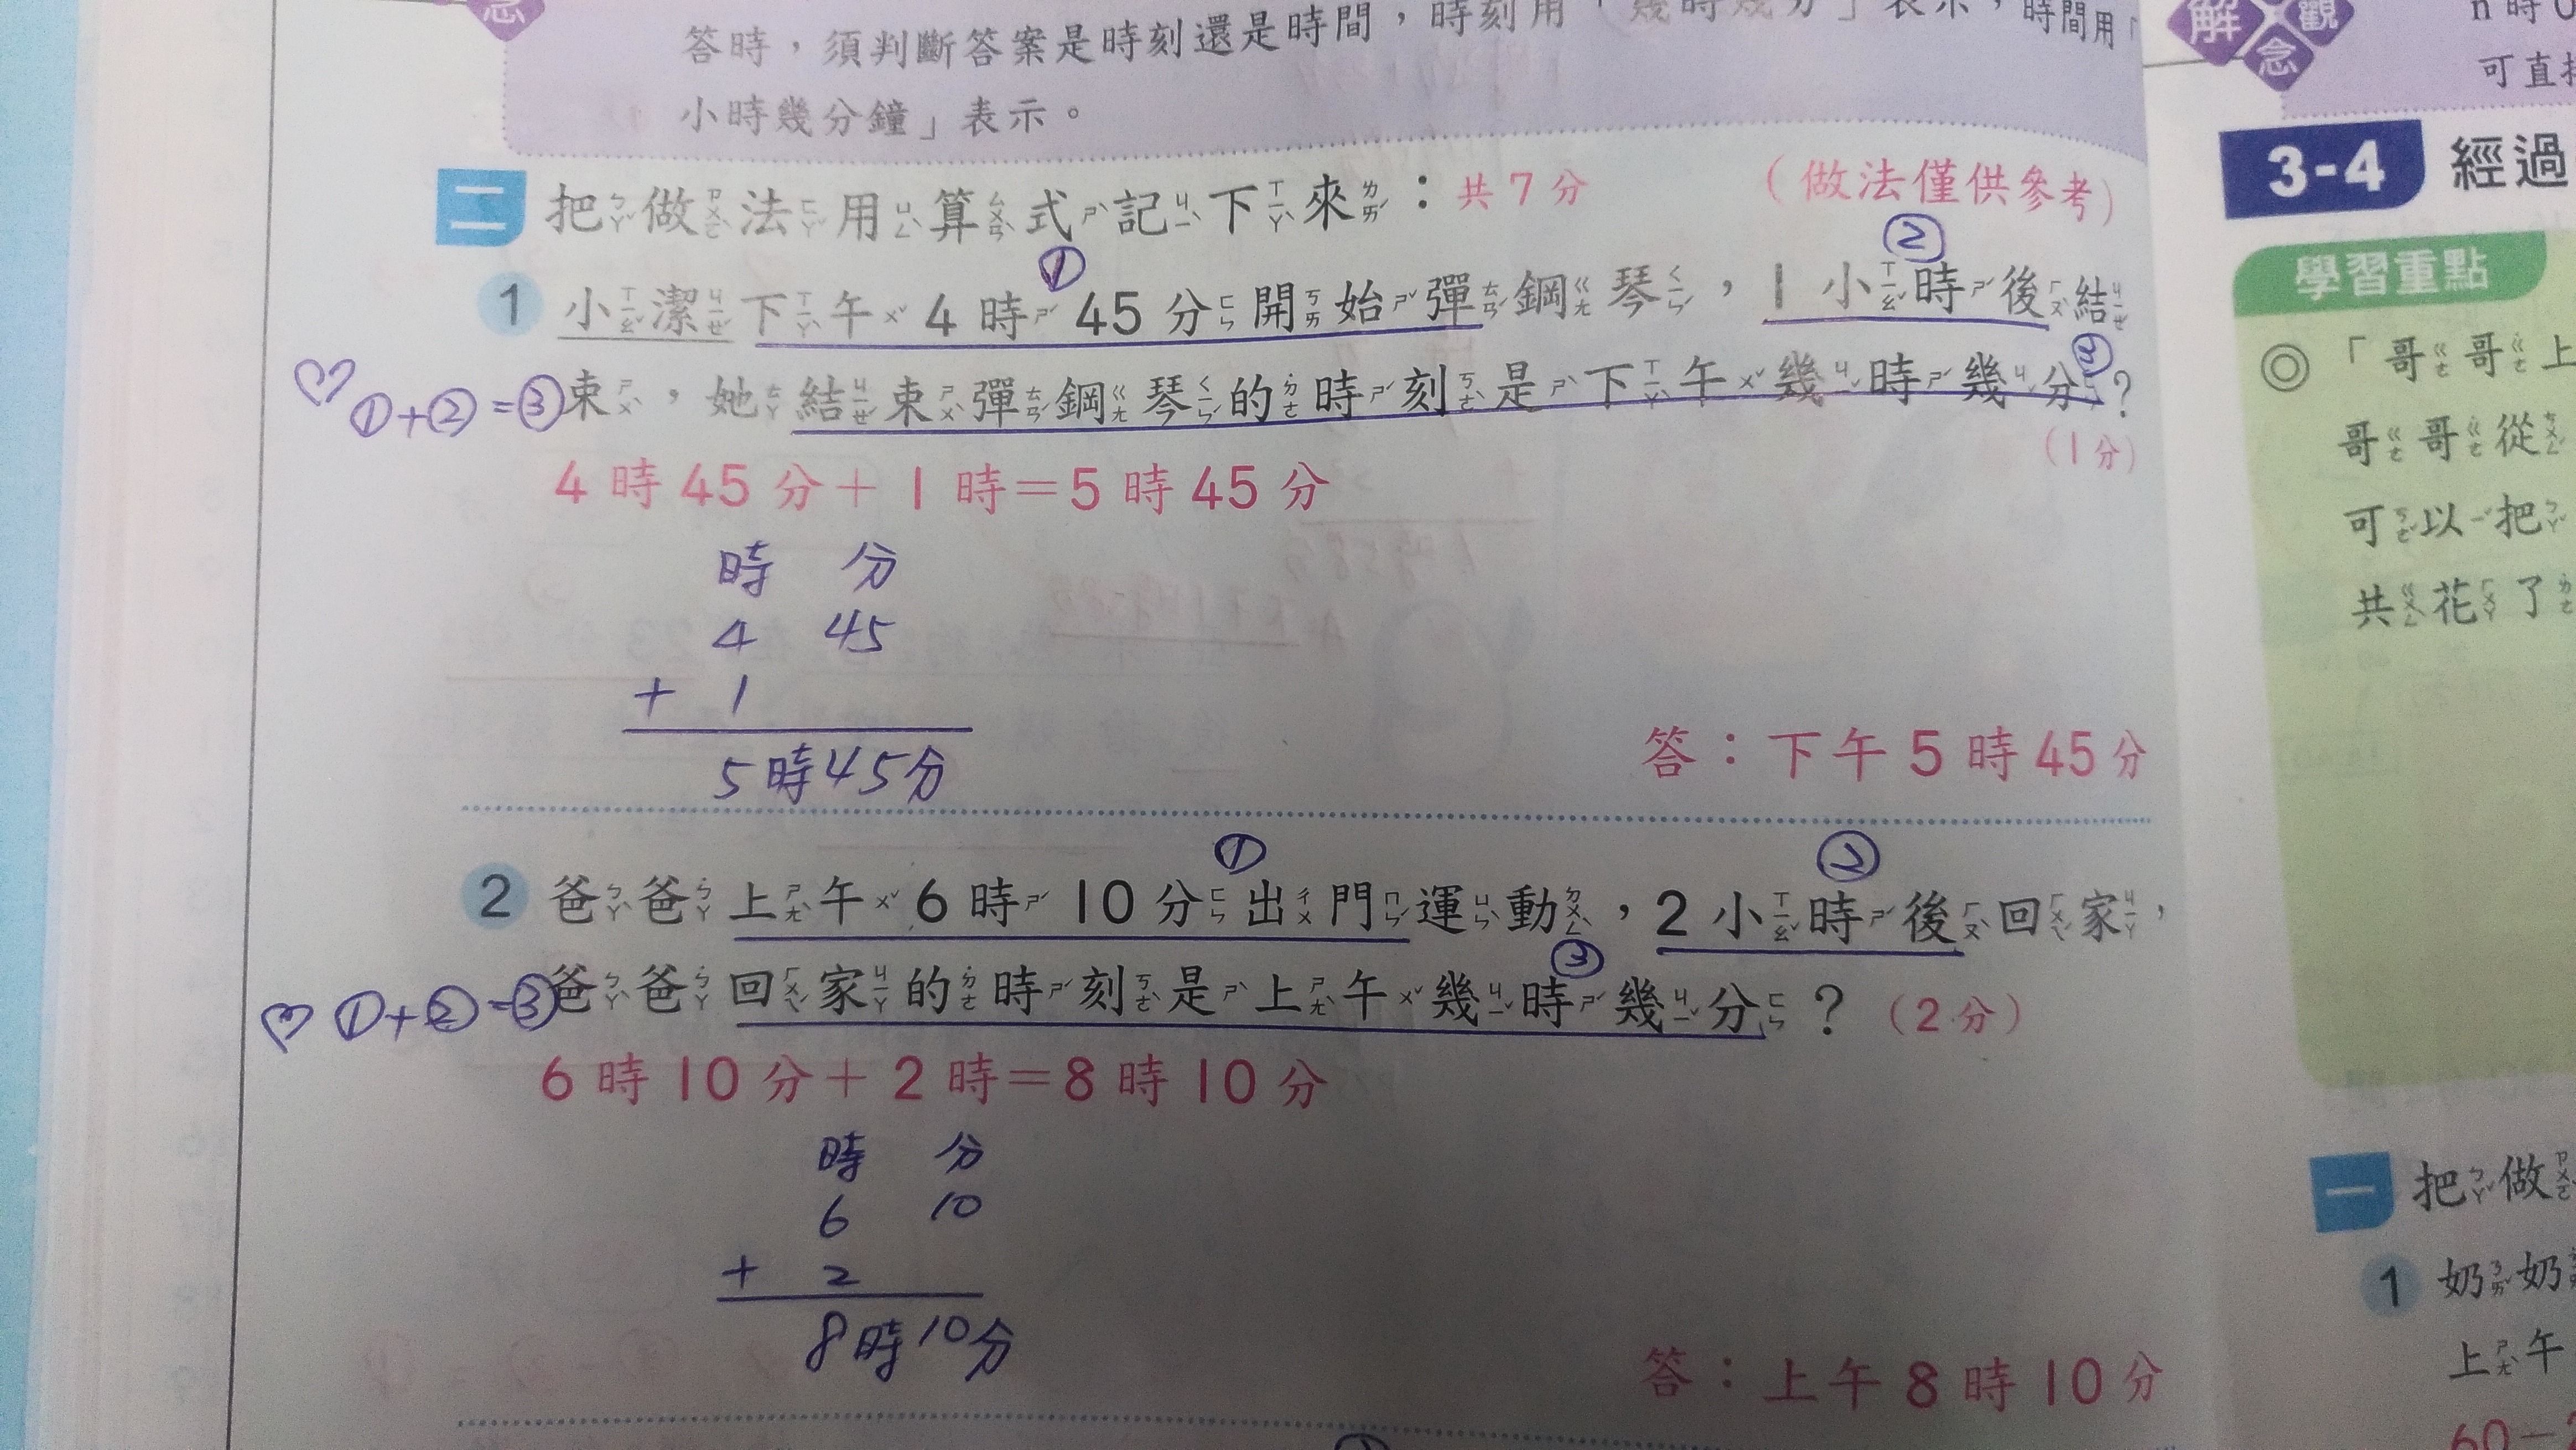 念
答時，須判斷答案是時刻還是時間，時刻用「幾時幾分」表示，時間用「
小時幾分鐘」表示。
二 把做法用算式記下來：共7分 （做法僅供參考）
① ②
1 小潔下午4時45分開始彈鋼琴，1小時後結
③
♡ ①+②=③ 束，她結束彈鋼琴的時刻是下午幾時幾分？
（1分）
4時45分＋1時＝5時45分
時 分
4 45
+ 1
5時45分
答：下午5時45分
① ②
2 爸爸上午6時10分出門運動，2小時後回家，
③
♡ ①+②=③ 爸爸回家的時刻是上午幾時幾分？（2分）
6時10分＋2時＝8時10分
時 分
6 10
+ 2
8時10分
答：上午8時10分
解觀念
可直
3-4 經過
學習重點
◎「哥哥上
哥哥從
可以把
共花了
一 把做
1 奶奶
上午
60－